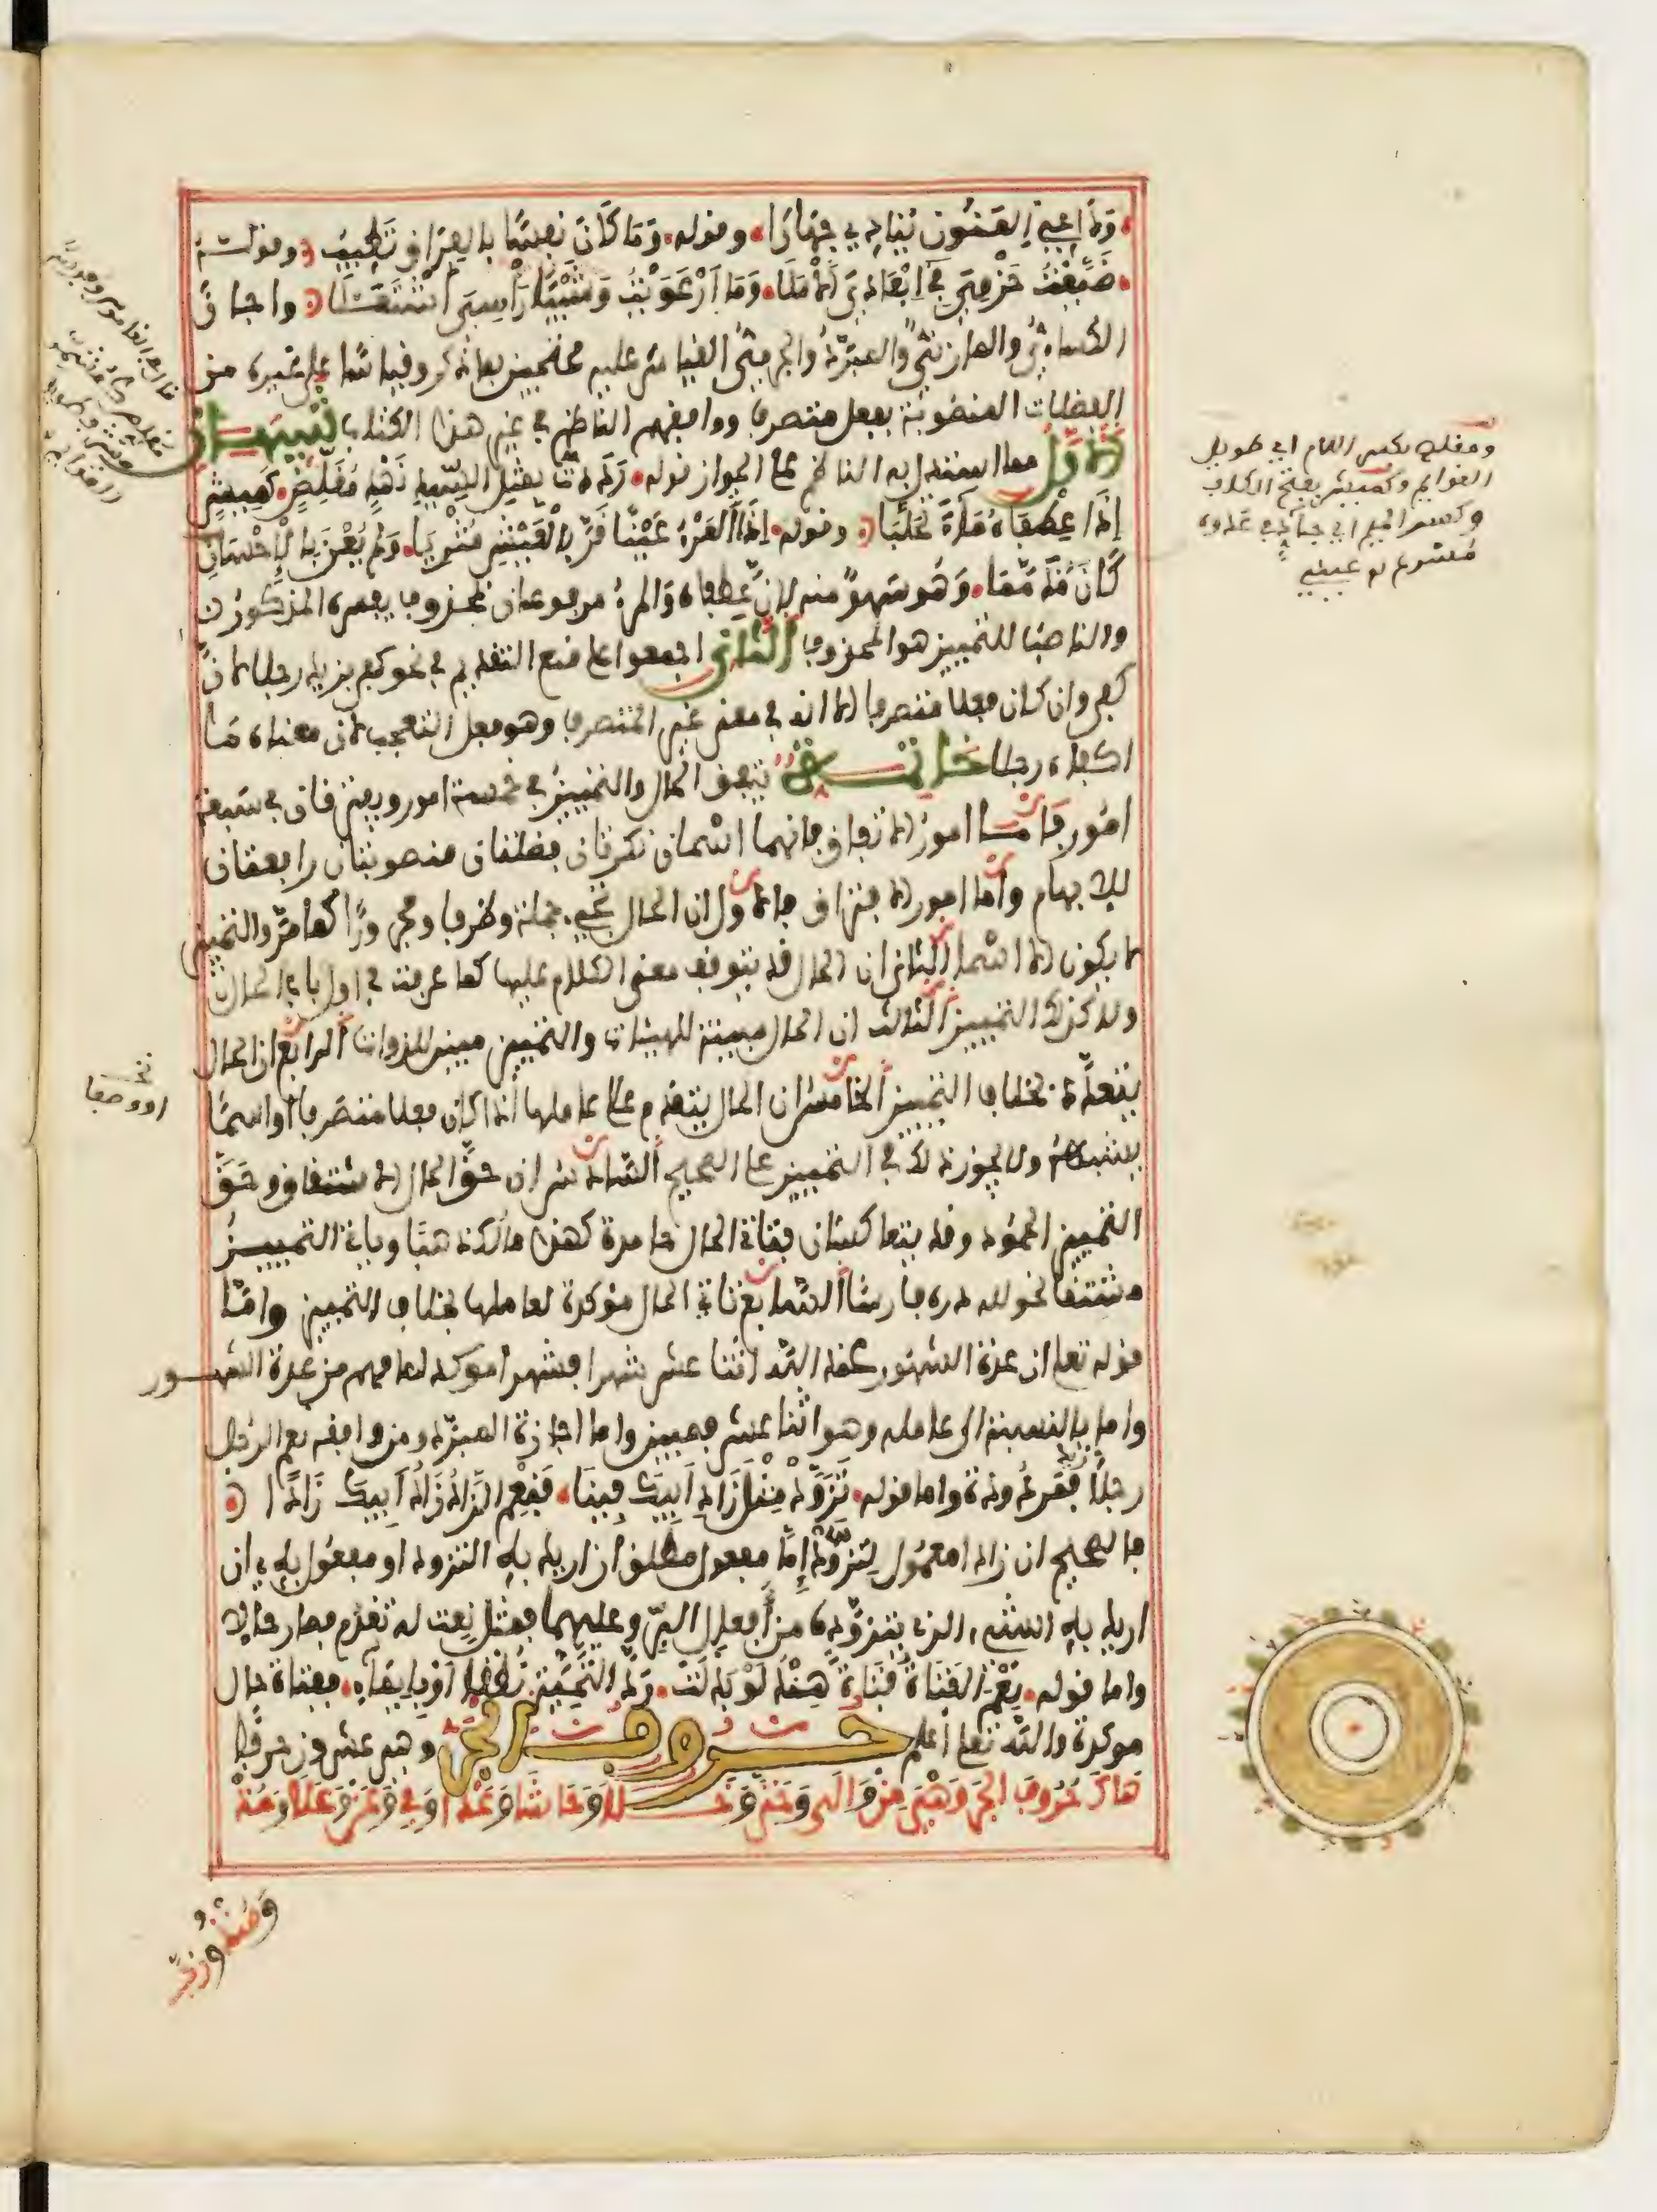 وداعي المنون ينادي جهارا وقوله وما كان نفسا بالفراق تطيب وقوله
ضيعت حزمي في إبعادي الأملا وما ارعويت وشيبا رأسي اشتعلا وأجاز
الكسائي والمازني والمبرد والجرمي القياس عليه محتجين بما ذكر وقياسا على غيره من
الفضلات المنصوبة بفعل متصرف ووافقهم الناظم في غير هذا الكتاب تنبيهان
الأول مما استدل به الناظم على الجواز قوله رددت بمثل السيد نهد مقلص كميش
إذا عطفاه ماء تحلبا وقوله إذا المرء عينا قر بالعيش مثريا ولم يعن بالإحسان
كان مذمما وهو سهو منه لأن عطفاه والمرء مرفوعان بمحذوف يفسره المذكور
والناصب للتمييز هو المحذوف الثاني أجمعوا على منع التقديم في نحو كفى بزيد رجلا لأن
كفى وإن كان فعلا متصرفا إلا أنه في معنى غير المتصرف وهو فعل التعجب لأن معناه ما
أكفاه رجلا خاتمة يتفق الحال والتمييز في خمسة أمور ويفترقان في سبعة
أمور فأما أمور الاتفاق فإنهما اسمان نكرتان فضلتان منصوبتان رافعتان
للإبهام وأما أمور الافتراق فالأول أن الحال تجيء جملة وظرفا ومجرورا كما مر والتمييز
لا يكون إلا اسما الثاني أن الحال قد يتوقف معنى الكلام عليها كما عرفت في أول باب الحال
ولا كذلك التمييز الثالث أن الحال مبينة للهيئات والتمييز مبين للذوات الرابع أن الحال
يتعدد بخلاف التمييز الخامس أن الحال يتقدم على عاملها إذا كان فعلا متصرفا أو اسما
يشبهه ولا يجوز ذلك في التمييز على الصحيح السادس أن حق الحال الاشتقاق وحق
التمييز الجمود وقد يتعاكسان فتأتي الحال جامدة كهذا مالك ذهبا ويأتي التمييز
مشتقا نحو لله دره فارسا السابع تأتي الحال مؤكدة لعاملها بخلاف التمييز وأما
قوله تعلى إن عدة الشهور عند الله اثنا عشر شهرا فشهرا موكد لما فهم من عدة الشهور
وأما بالنسبة إلى عامله وهو اثنا عشر فمبين وأما إجازة المبرد ومن وافقه نعم الرجل
رجلا زيد فمردودة وأما قوله تزود مثل زاد أبيك فينا فنعم الزاد زاد أبيك زادا
فالصحيح أن زادا معمول لتزود إما مفعول مطلق إن أريد به التزود أو مفعول به إن
أريد به الشيء الذي يتزوده من أفعال البر وعليهما فمثل نعت له تقدم فصار حالا
وأما قوله نعم الفتاة فتاة هند لو بذلت رد التحية نطقا أو بإيماء ففتاة حال
موكدة والله تعلى أعلم حروف الجر وهي عشرون حرفا
هاك حروف الجر وهي من والى وحتى وخلا وحاشا وعدا وفي وعن وعلى ومذ
ومنذ ورب
ومقلص بكسر اللام أي طويل
القوائم وكميش بفتح الكاف
وكسر الميم أي جاد في عدوه
مسرع
أو وصفا